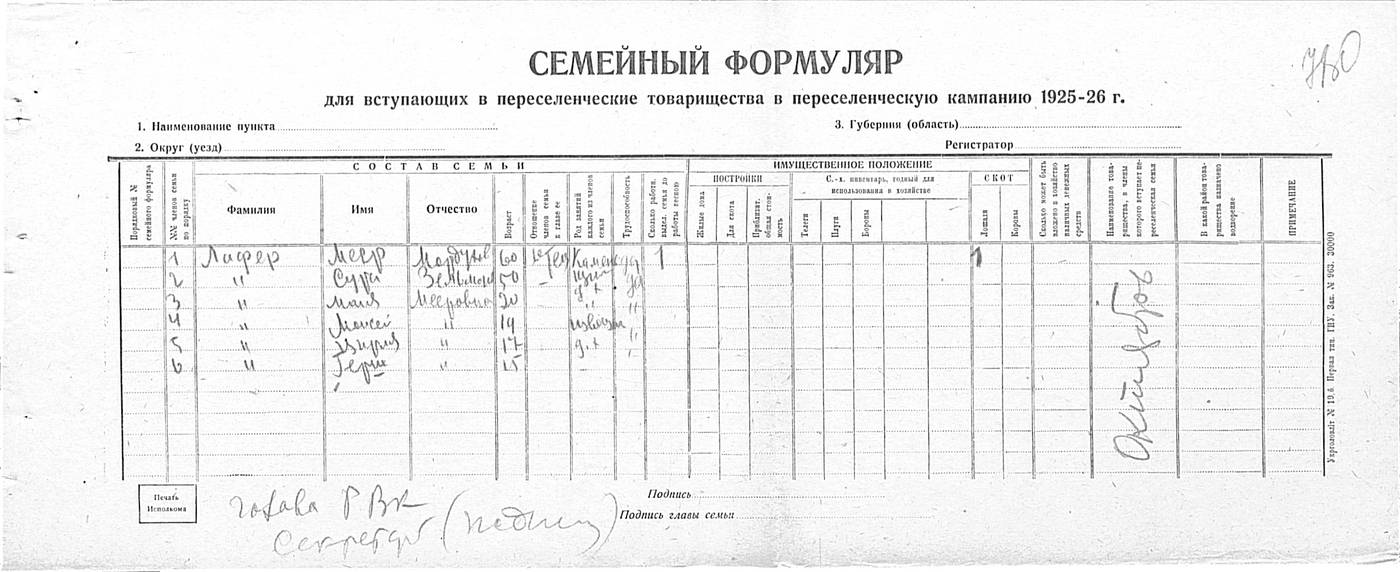 СЕМЕЙНЫЙ ФОРМУЛЯР
для вступающих в переселенческие товарищества в переселенческую кампанию 1925-26 г.
1. Наименование пункта
3. Губерния (область)
2. Округ (уезд)
Регистратор
СОСТАВ СЕМЬИ
ИМУЩЕСТВЕННОЕ ПОЛОЖЕНИЕ
Порядковый № семейного формуляра
№№ членов семьи по порядку
Фамилия
Имя
Отчество
Возраст
Отношение членов семьи к главе ее
Род занятий каждого из членов семьи
Трудоспособность
Сколько работн. выдел. семья до работы весною
ПОСТРОЙКИ
Жилые дома
Для скота
Приблизит. общая стоимость
С.-х. инвентарь, годный для использования в хозяйстве
Телеги
Плуги
Бороны
СКОТ
Лошади
Коровы
Сколько может быть вложено в хозяйство наличных денежных средств
Наименование товарищества, в члены которого вступает переселенческая семья
В какой район товарищества назначено водворение
ПРИМЕЧАНИЕ
1 Лифер Меер 60 да 1 1
2 " Сура 50 да
3 " Маня Мееровна 20 " "
4 " Моисей " 19 извозч "
5 " " 17 д.х "
6 " Герш " 15
Октябров
Укрголовліт № 19.6. Первая тип. ГИУ. Зак. № 963. 30000
Печать
Исполкома
Подпись
Подпись главы семьи
Голова РВК
Секретарь (подпись)